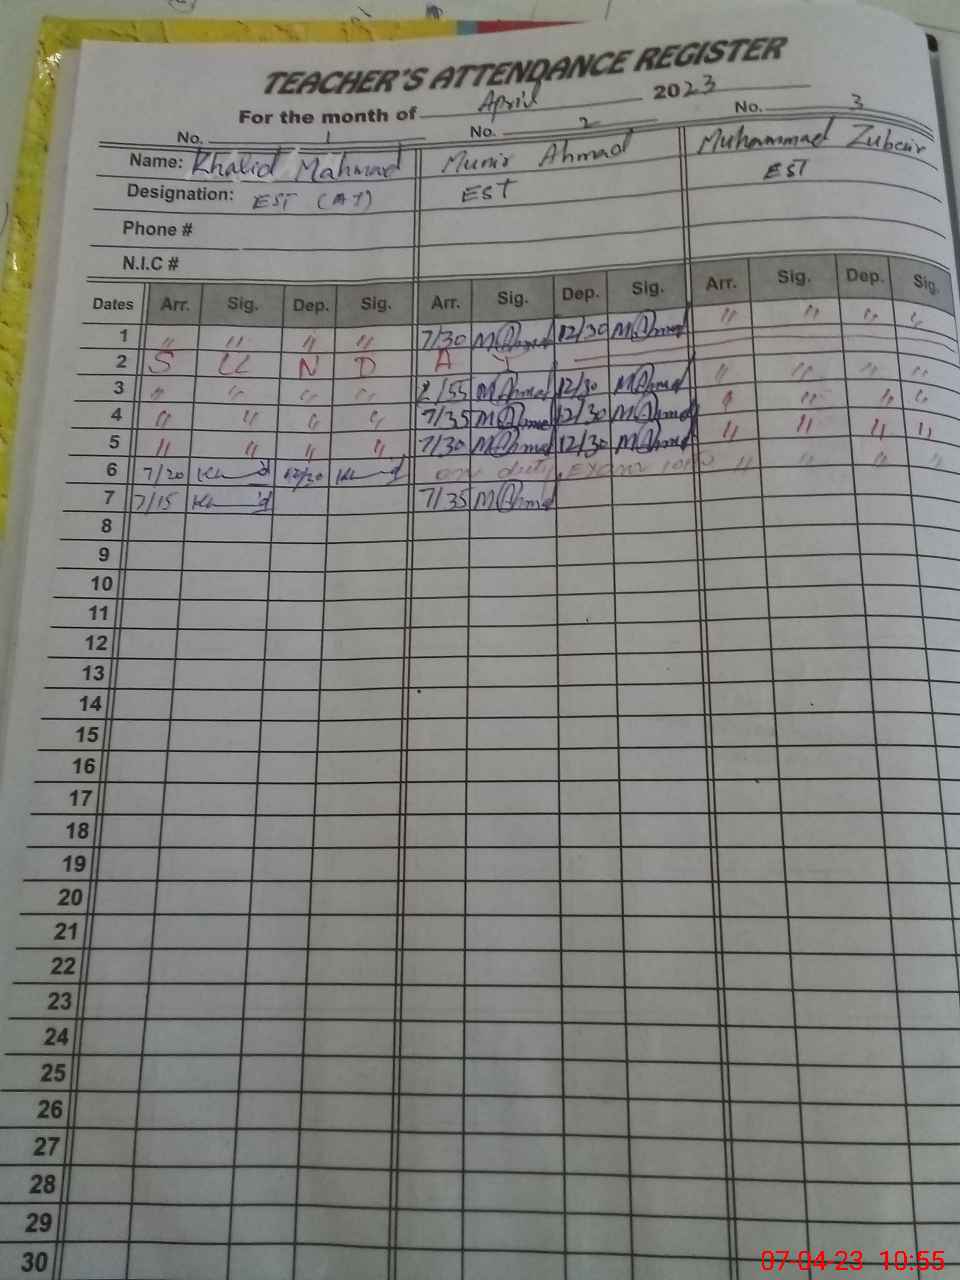 TEACHER'S ATTENDANCE REGISTER
For the month of April 2023
No. 1 No. 2 No. 3
Name: Khalid Mahmad Munir Ahmad Muhammad Zubair
Designation: EST (AT) EST EST
Phone #
N.I.C #
Dates Arr. Sig. Dep. Sig. Arr. Sig. Dep. Sig. Arr. Sig. Dep. Sig.
1 " " " " 7/30 MAhmad 12/30 MAhmad " " " "
2 S U N D A Y
3 " " " " MAhmad 12/30 MAhmad " " " "
4 " " " " 7/35 MAhmad 12/30 MAhmad " " " "
5 " " " " 7/30 MAhmad 12/30 MAhmad " " " "
6 7/20 12/30 on duty Exam " " " "
7 7/15 7/35 MAhmad
8
9
10
11
12
13
14
15
16
17
18
19
20
21
22
23
24
25
26
27
28
29
30
07-04-23 10:55